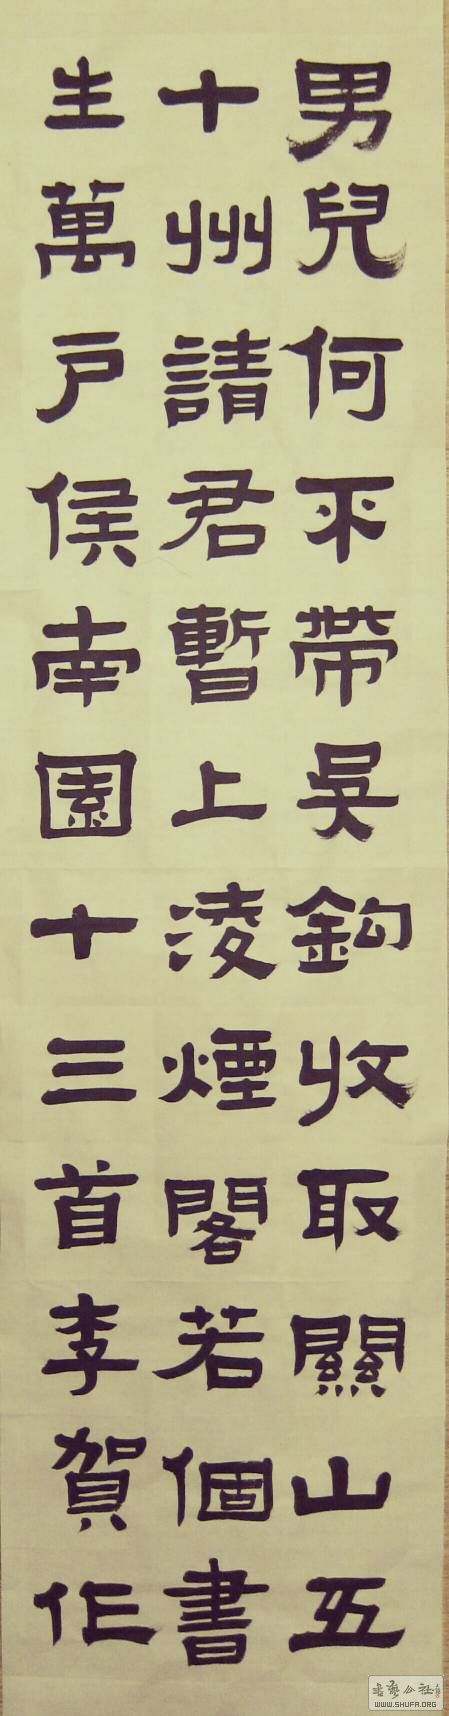 男兒何不帶吳鈎收取關山五
十州請君暫上淩煙閣若個書
生萬戶侯南園十三首李賀作
書藝公社
WWW.SHUFA.ORG